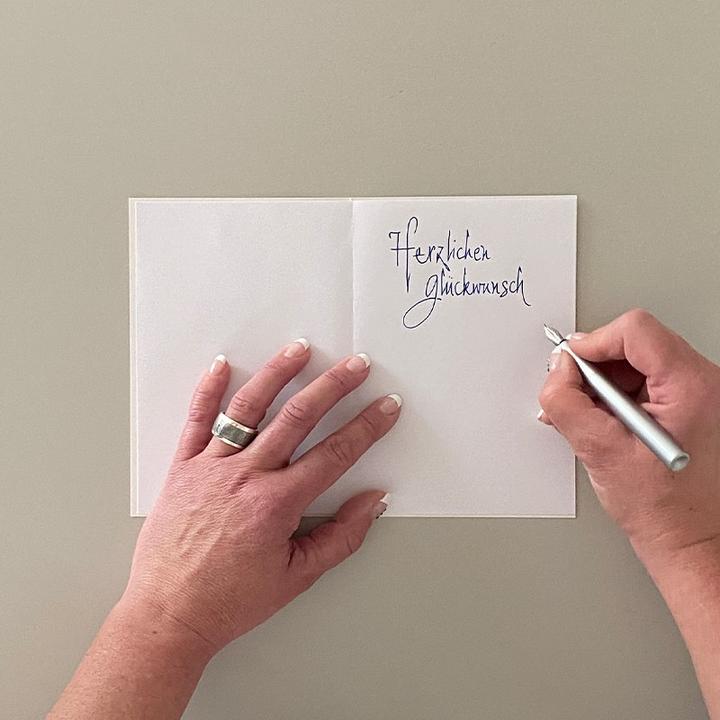 Herzlichen
glückwunsch